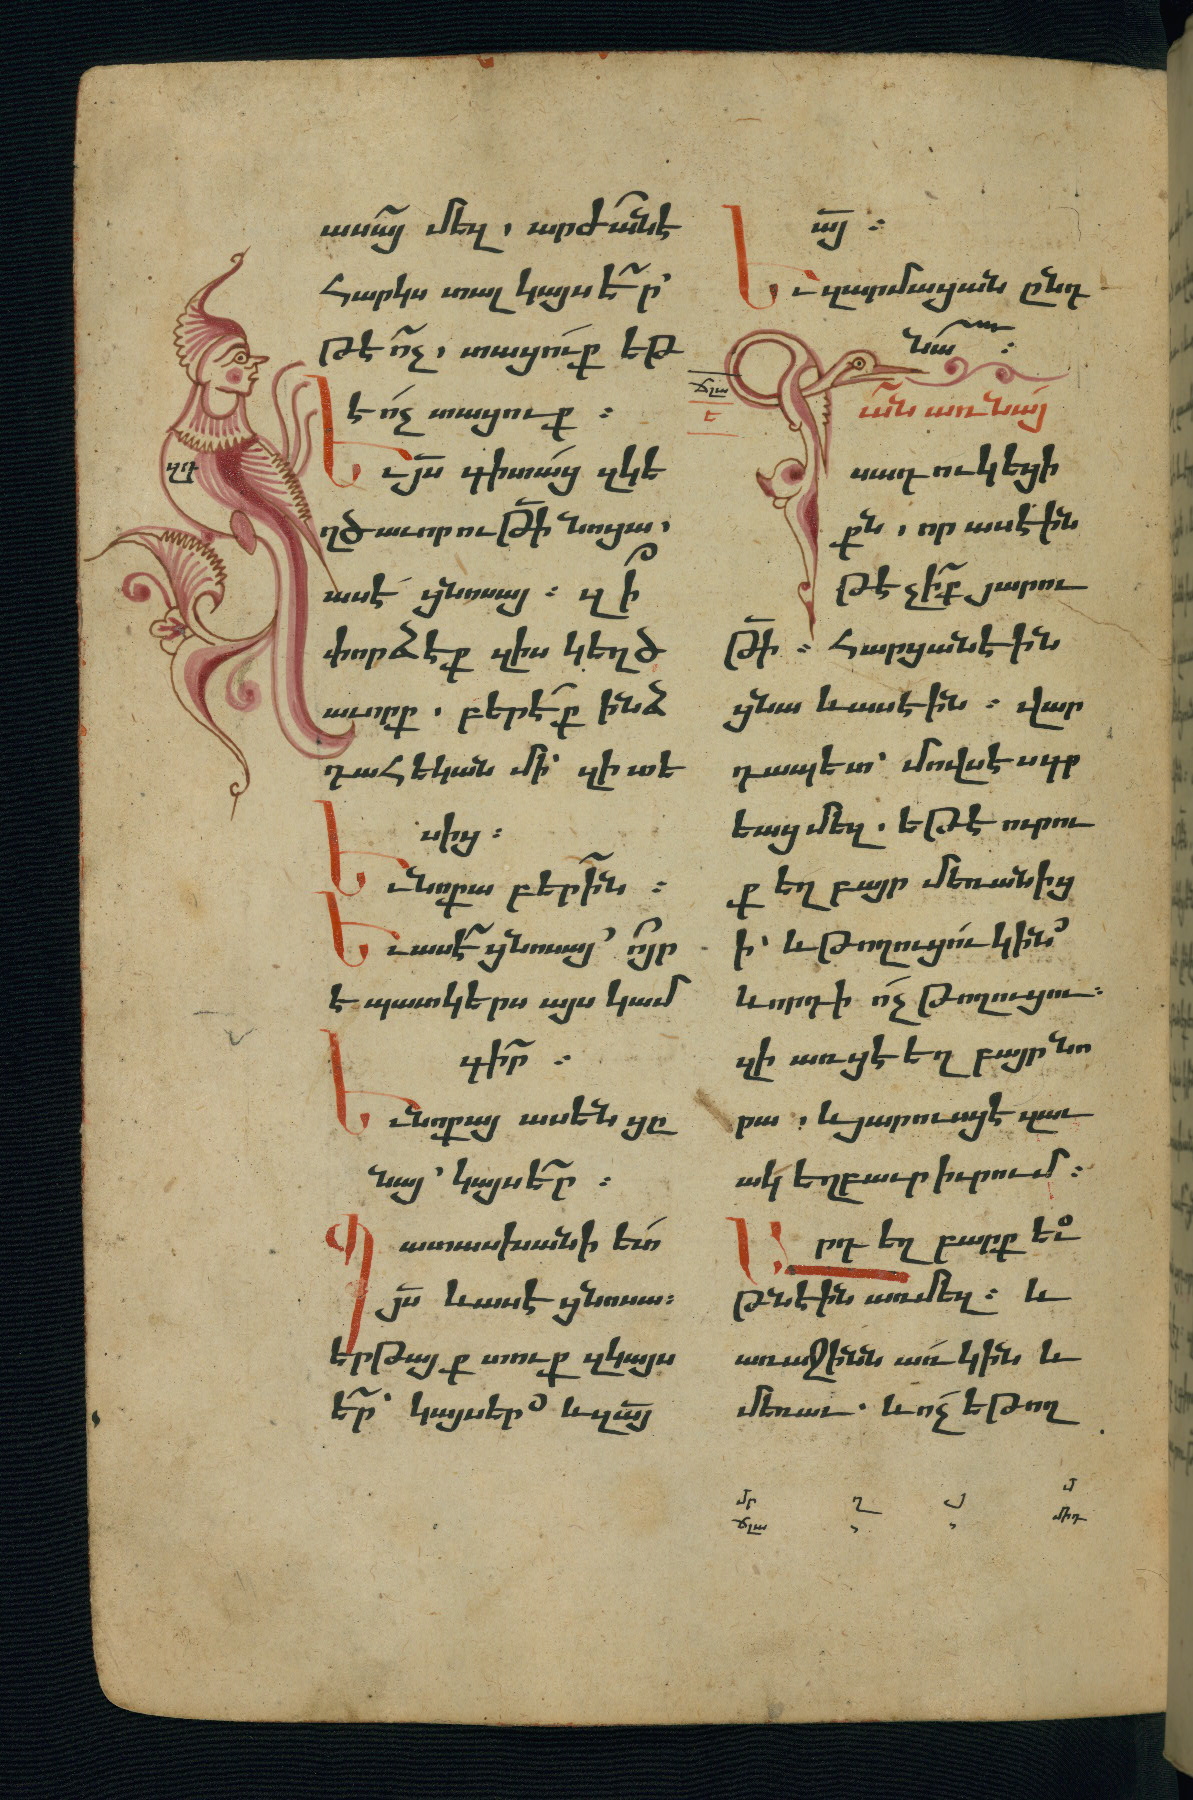 ասա՜ց մեզ, արժա՜նէ
հարկս տալ կայսե՜ր՝
թէ ո՜չ, տացու՛ք եթ
է ո՛չ տացուք :
Եւ յ՜ս գիտա՛ց զկե
ղծաւորութի՜ նոցա,
ասէ ցնոսայ : զի՞
փորձէք զիս կեղծ
աւորք, բերէ՛ք ինձ
դահեկան մի՝ զի տե
սից :
Եւ նոքա բերի՜ն :
Եւ ասէ՜ ցնոսայ՝ ո՜յր
է պատկերս այս կամ
գի՜ր :
Եւ նոքայ ասեն ցը
նայ՝ կայսե՜ր :
Պատասխանի ետ՛
յ՜ս և ասէ ցնոսա:
երթայք տուք զկայս
ե՜ր՝ կայսեր՞ և զա՜յ
ա՜յ :
Եւ զարմացան ընդ
նա՜ :
ա՜ն առ նայ՛
սադուկեցի
քն, որ ասէին
թէ չի՜ք յարու
թի՜ : Հարցանէին
ցնա և ասէին : վար
դապետ՝ մովսէս գր
եաց մեզ. եթէ ուրու
ք եղբայր մեռանից
ի՝ և թողուցու՛ կին՞
և որդի ո՛չ թողուցու:
զի առցէ եղբայր նո
րա, և յարուսցէ զաւ
ակ եղբաւր իւրում :
Արդ եղբարք եւ՞
թնէին առ մեզ : և
առաջինն առ՛ կին և
մեռաւ. և ո՛չ եթող
ղդ
ճլա
ե
մր
ճլա
ղ
մ
մ
միդ